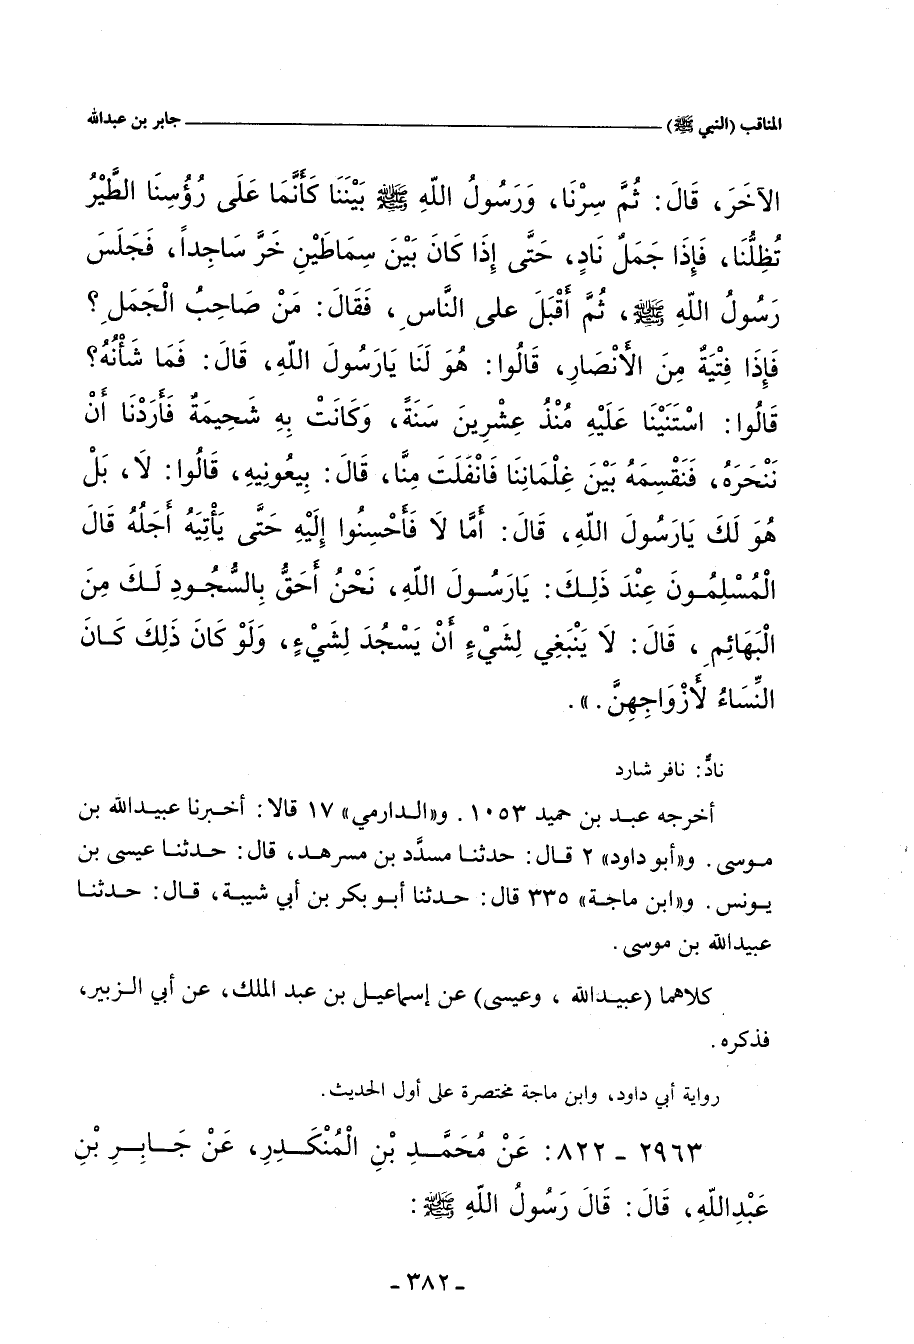 المناقب (النبي ﷺ) ــــــــــــــــــــــــــــــــــــــــــــــــــ جابر بن عبدالله
الآخَرَ، قَالَ: ثُمَّ سِرْنَا، وَرَسُولُ اللّهِ ﷺ بَيْنَنَا كَأَنَّمَا عَلَى رُؤُسِنَا الطَّيْرُ
تُظِلُّنَا، فَإِذَا جَمَلٌ نَادٍ، حَتَّى إِذَا كَانَ بَيْنَ سِمَاطَيْنِ خَرَّ سَاجِداً، فَجَلَسَ
رَسُولُ اللّهِ ﷺ، ثُمَّ أَقْبَلَ على النَّاسِ، فَقَالَ: مَنْ صَاحِبُ الْجَمَلِ؟
فَإِذَا فِتْيَةٌ مِنَ الأَنْصَارِ، قَالُوا: هُوَ لَنَا يَارَسُولَ اللّهِ، قَالَ: فَمَا شَأْنُهُ؟
قَالُوا: اسْتَنَيْنَا عَلَيْهِ مُنْذُ عِشْرِينَ سَنَةً، وَكَانَتْ بِهِ شَحِيمَةٌ فَأَرَدْنَا أَنْ
نَنْحَرَهُ، فَنَقْسِمَهُ بَيْنَ غِلْمَانِنَا فَانْفَلَتَ مِنَّا، قَالَ: بِيعُونِيهِ، قَالُوا: لَا، بَلْ
هُوَ لَكَ يَارَسُولَ اللّهِ، قَالَ: أَمَّا لَا فَأَحْسِنُوا إِلَيْهِ حَتَّى يَأْتِيَهُ أَجَلُهُ قَالَ
الْمُسْلِمُونَ عِنْدَ ذَلِكَ: يَارَسُولَ اللّهِ، نَحْنُ أَحَقُّ بِالسُّجُودِ لَكَ مِنَ
الْبَهَائِمِ، قَالَ: لَا يَنْبَغِي لِشَيْءٍ أَنْ يَسْجُدَ لِشَيْءٍ، وَلَوْ كَانَ ذَلِكَ كَانَ
النِّسَاءُ لأَزْوَاجِهِنَّ.».
نادٌّ: نافر شارد
أخرجه عبد بن حميد ١٠٥٣. و«الدارمي» ١٧ قالا: أخبرنا عبيدالله بن
موسى. و«أبو داود» ٢ قال: حدثنا مسدَّد بن مسرهد، قال: حدثنا عيسى بن
يونس. و«ابن ماجة» ٣٣٥ قال: حدثنا أبو بكر بن أبي شيبة، قال: حدثنا
عبيدالله بن موسى.
كلاهما (عبيدالله، وعيسى) عن إسماعيل بن عبد الملك، عن أبي الزبير،
فذكره.
رواية أبي داود، وابن ماجة مختصرة على أول الحديث.
٢٩٦٣ - ٨٢٢: عَنْ مُحَمَّدِ بْنِ الْمُنْكَدِرِ، عَنْ جَابِرِ بْنِ
عَبْدِاللّهِ، قَالَ: قَالَ رَسُولُ اللّهِ ﷺ:
- ٣٨٢ -